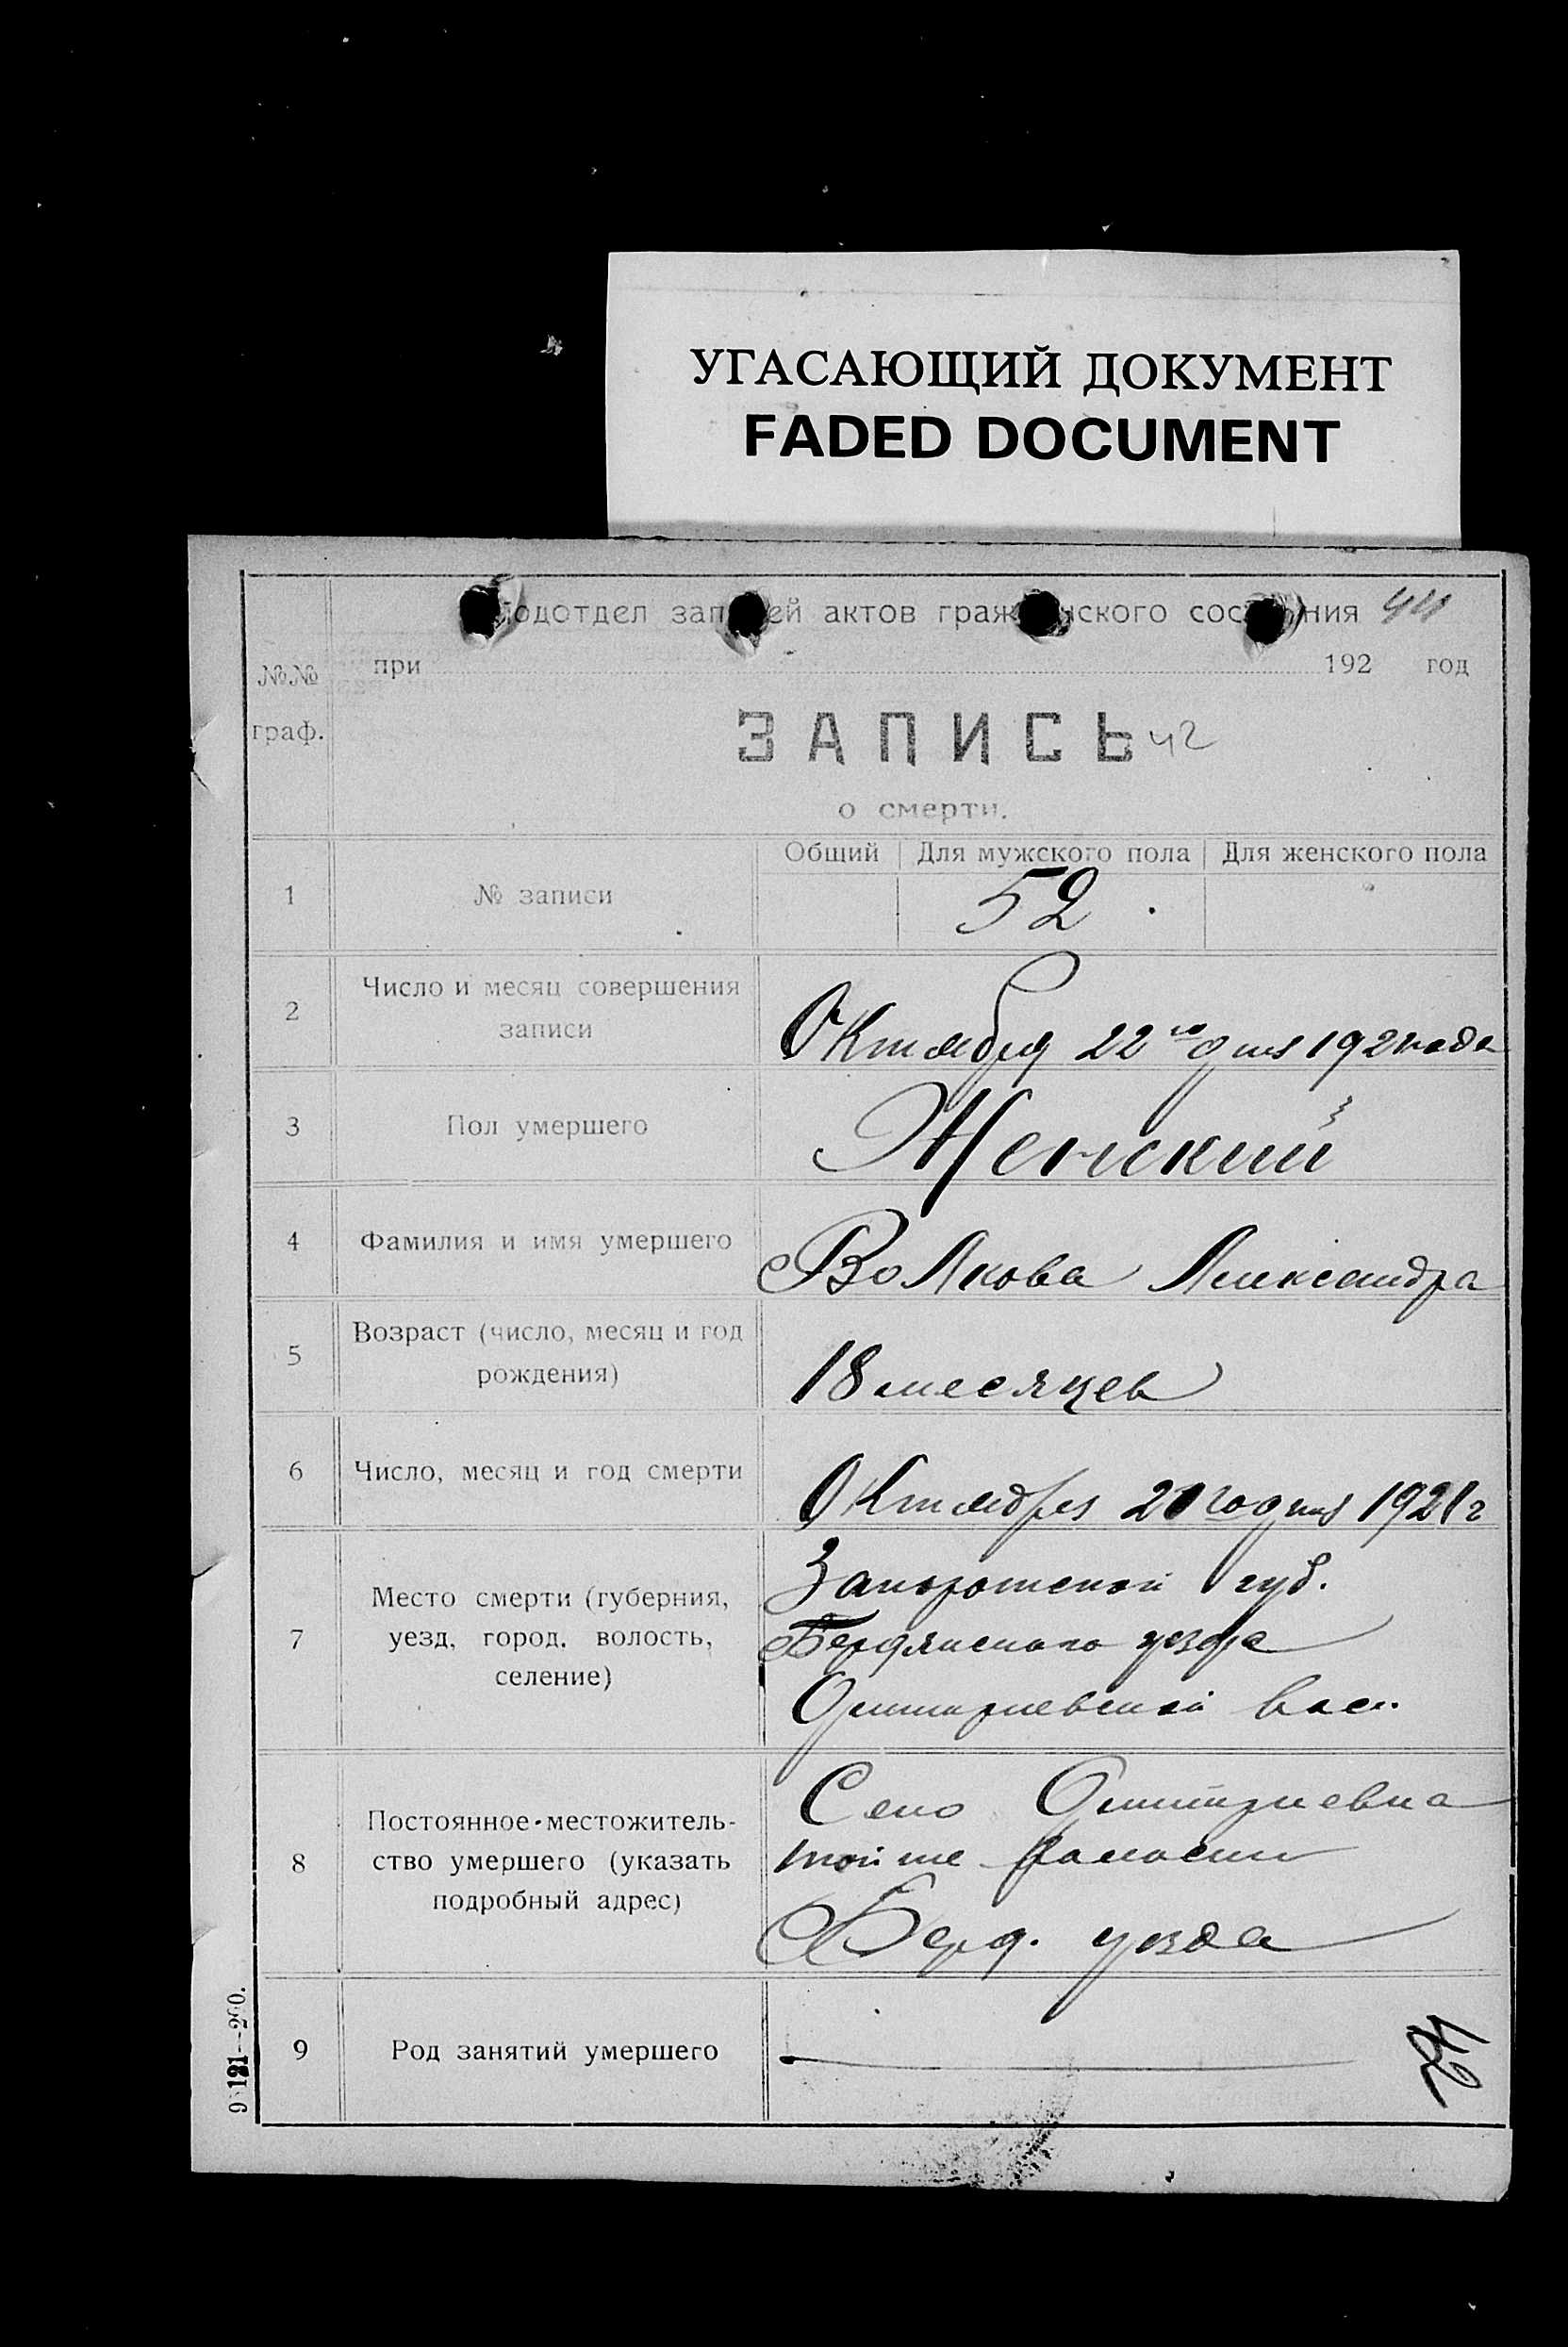 УГАСАЮЩИЙ ДОКУМЕНТ
FADED DOCUMENT
подотдел записей актов гражданского состояния 44
при 192 год
№№ граф.
ЗАПИСЬ 42
о смерти.
Общий Для мужского пола Для женского пола
1 № записи 52
2 Число и месяц совершения
записи
Октября 22го дня 1921 года
3 Пол умершего Женский
4 Фамилия и имя умершего Волкова Александра
5 Возраст (число, месяц и год
рождения)
18 месяцев
6 Число, месяц и год смерти Октября 20 го дня 1921 г
7 Место смерти (губерния,
уезд, город, волость,
селение)
Запорожской губ.
Бердянского уезда
Дмитриевской вол.
8 Постоянное местожитель-
ство умершего (указать
подробный адрес)
Село Дмитриевка
той же волости
Берд. уезда
9 Род занятий умершего
42